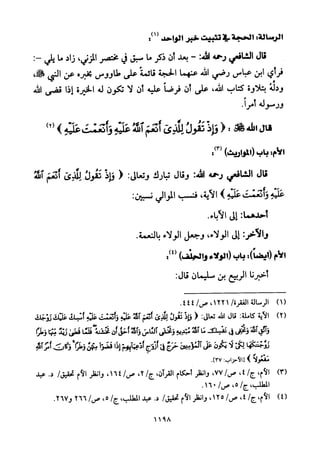 الرسالة: الحجة في تثبيت خبر الواحد (١):
قال الشافعي رحمه الله: - بعد أن ذكر ما سبق في مختصر المزني، زاد ما يلي -:
فرأى ابن عباس رضي الله عنهما الحجة قائمة على طاووس بخبره عن النبي ﷺ،
ودلَّهُ بتلاوة كتاب الله، على أن فرضاً عليه أن لا تكون له الخيرة إذا قضى الله
ورسوله أمراً.
قال الله ﷻ: ﴿ وَإِذْ تَقُولُ لِلَّذِي أَنْعَمَ اللَّهُ عَلَيْهِ وَأَنْعَمْتَ عَلَيْهِ ﴾ (٢)
الأم: باب (المواريث) (٣):
قال الشافعي رحمه الله: وقال تبارك وتعالى: ﴿ وَإِذْ تَقُولُ لِلَّذِي أَنْعَمَ اللَّهُ
عَلَيْهِ وَأَنْعَمْتَ عَلَيْهِ ﴾ الآية، فنسب الموالي نسبين:
أحدهما: إلى الآباء.
والآخر: إلى الولاء، وجعل الولاء بالنعمة.
الأم (أيضاً): باب (الولاء والحلف) (٤):
أخبرنا الربيع بن سليمان قال:
(١) الرسالة الفقرة/ ١٢٢١، ص/ ٤٤٤.
(٢) الآية كاملة: قال الله تعالى: ﴿ وَإِذْ تَقُولُ لِلَّذِي أَنْعَمَ اللَّهُ عَلَيْهِ وَأَنْعَمْتَ عَلَيْهِ أَمْسِكْ عَلَيْكَ زَوْجَكَ
وَاتَّقِ اللَّهَ وَتُخْفِي فِي نَفْسِكَ مَا اللَّهُ مُبْدِيهِ وَتَخْشَى النَّاسَ وَاللَّهُ أَحَقُّ أَنْ تَخْشَاهُ فَلَمَّا قَضَى زَيْدٌ مِنْهَا وَطَرًا
زَوَّجْنَاكَهَا لِكَيْ لَا يَكُونَ عَلَى الْمُؤْمِنِينَ حَرَجٌ فِي أَزْوَاجِ أَدْعِيَائِهِمْ إِذَا قَضَوْا مِنْهُنَّ وَطَرًا وَكَانَ أَمْرُ اللَّهِ
مَفْعُولًا ﴾ [الأحزاب: ٣٧].
(٣) الأم، ج/ ٤، ص/ ٧٧، وانظر أحكام القرآن، ج/ ٢، ص/ ١٦٤، وانظر الأم تحقيق/ د. عبد
المطلب، ج/ ٥، ص/ ١٦٠.
(٤) الأم، ج/ ٤، ص/ ١٢٥، وانظر الأم تحقيق/ د. عبد المطلب، ج/ ٥، ص/ ٢٦٦ و٢٦٧.
١١٩٨